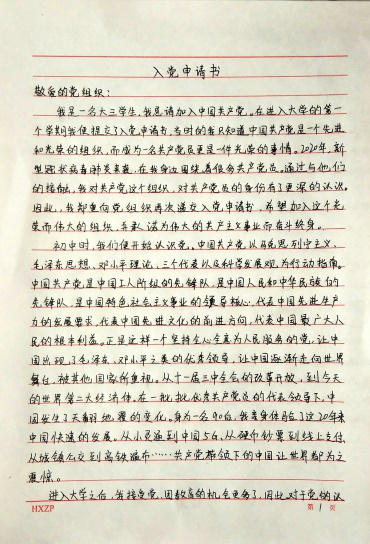 入党申请书
敬爱的党组织：
我是一名大三学生，我恳请加入中国共产党。在进入大学的第一
个学期我便提交了入党申请书，当时的我只知道中国共产党是一个先进
和光荣的组织，而成为一名共产党员更是一件光荣的事情。2020年，新
型冠状病毒肺炎来袭，在我身边围绕着很多共产党员。通过与他们
的接触，我对共产党这个组织，对共产党员的身份有了更深的认识。
因此，我郑重向党组织再次递交入党申请书，希望加入这个光
荣而伟大的组织，并承诺为伟大的共产主义事业而奋斗终身。
初中时，我们便开始认识党。中国共产党以马克思列宁主义、
毛泽东思想、邓小平理论、三个代表以及科学发展观为行动指南。
中国共产党是中国工人阶级的先锋队，是中国人民和中华民族的
先锋队，是中国特色社会主义事业的领导核心，代表中国先进生产
力的发展要求，代表中国先进文化的前进方向，代表中国最广大人
民的根本利益。正是这样一个坚持全心全意为人民服务的党，让中
国出现了毛泽东、邓小平之类的优秀领导，让中国逐渐走向世界
舞台，被其他国家所重视。从十一届三中全会的改革开放，到今天
的世界第二大经济体，在一批批优秀共产党员的代表领导下，中
国发生了天翻地覆的变化。身为一名90后，我亲身体会了这20年来
中国快速的发展，从小灵通到中国5G，从硬币钞票到线上支付，
从城镇公交到高铁遍布……共产党带领下的中国让世界都为之
震惊。
进入大学之后，我接受党、团教育的机会更多了，因此，对于党的认
HXZP
第 1 页